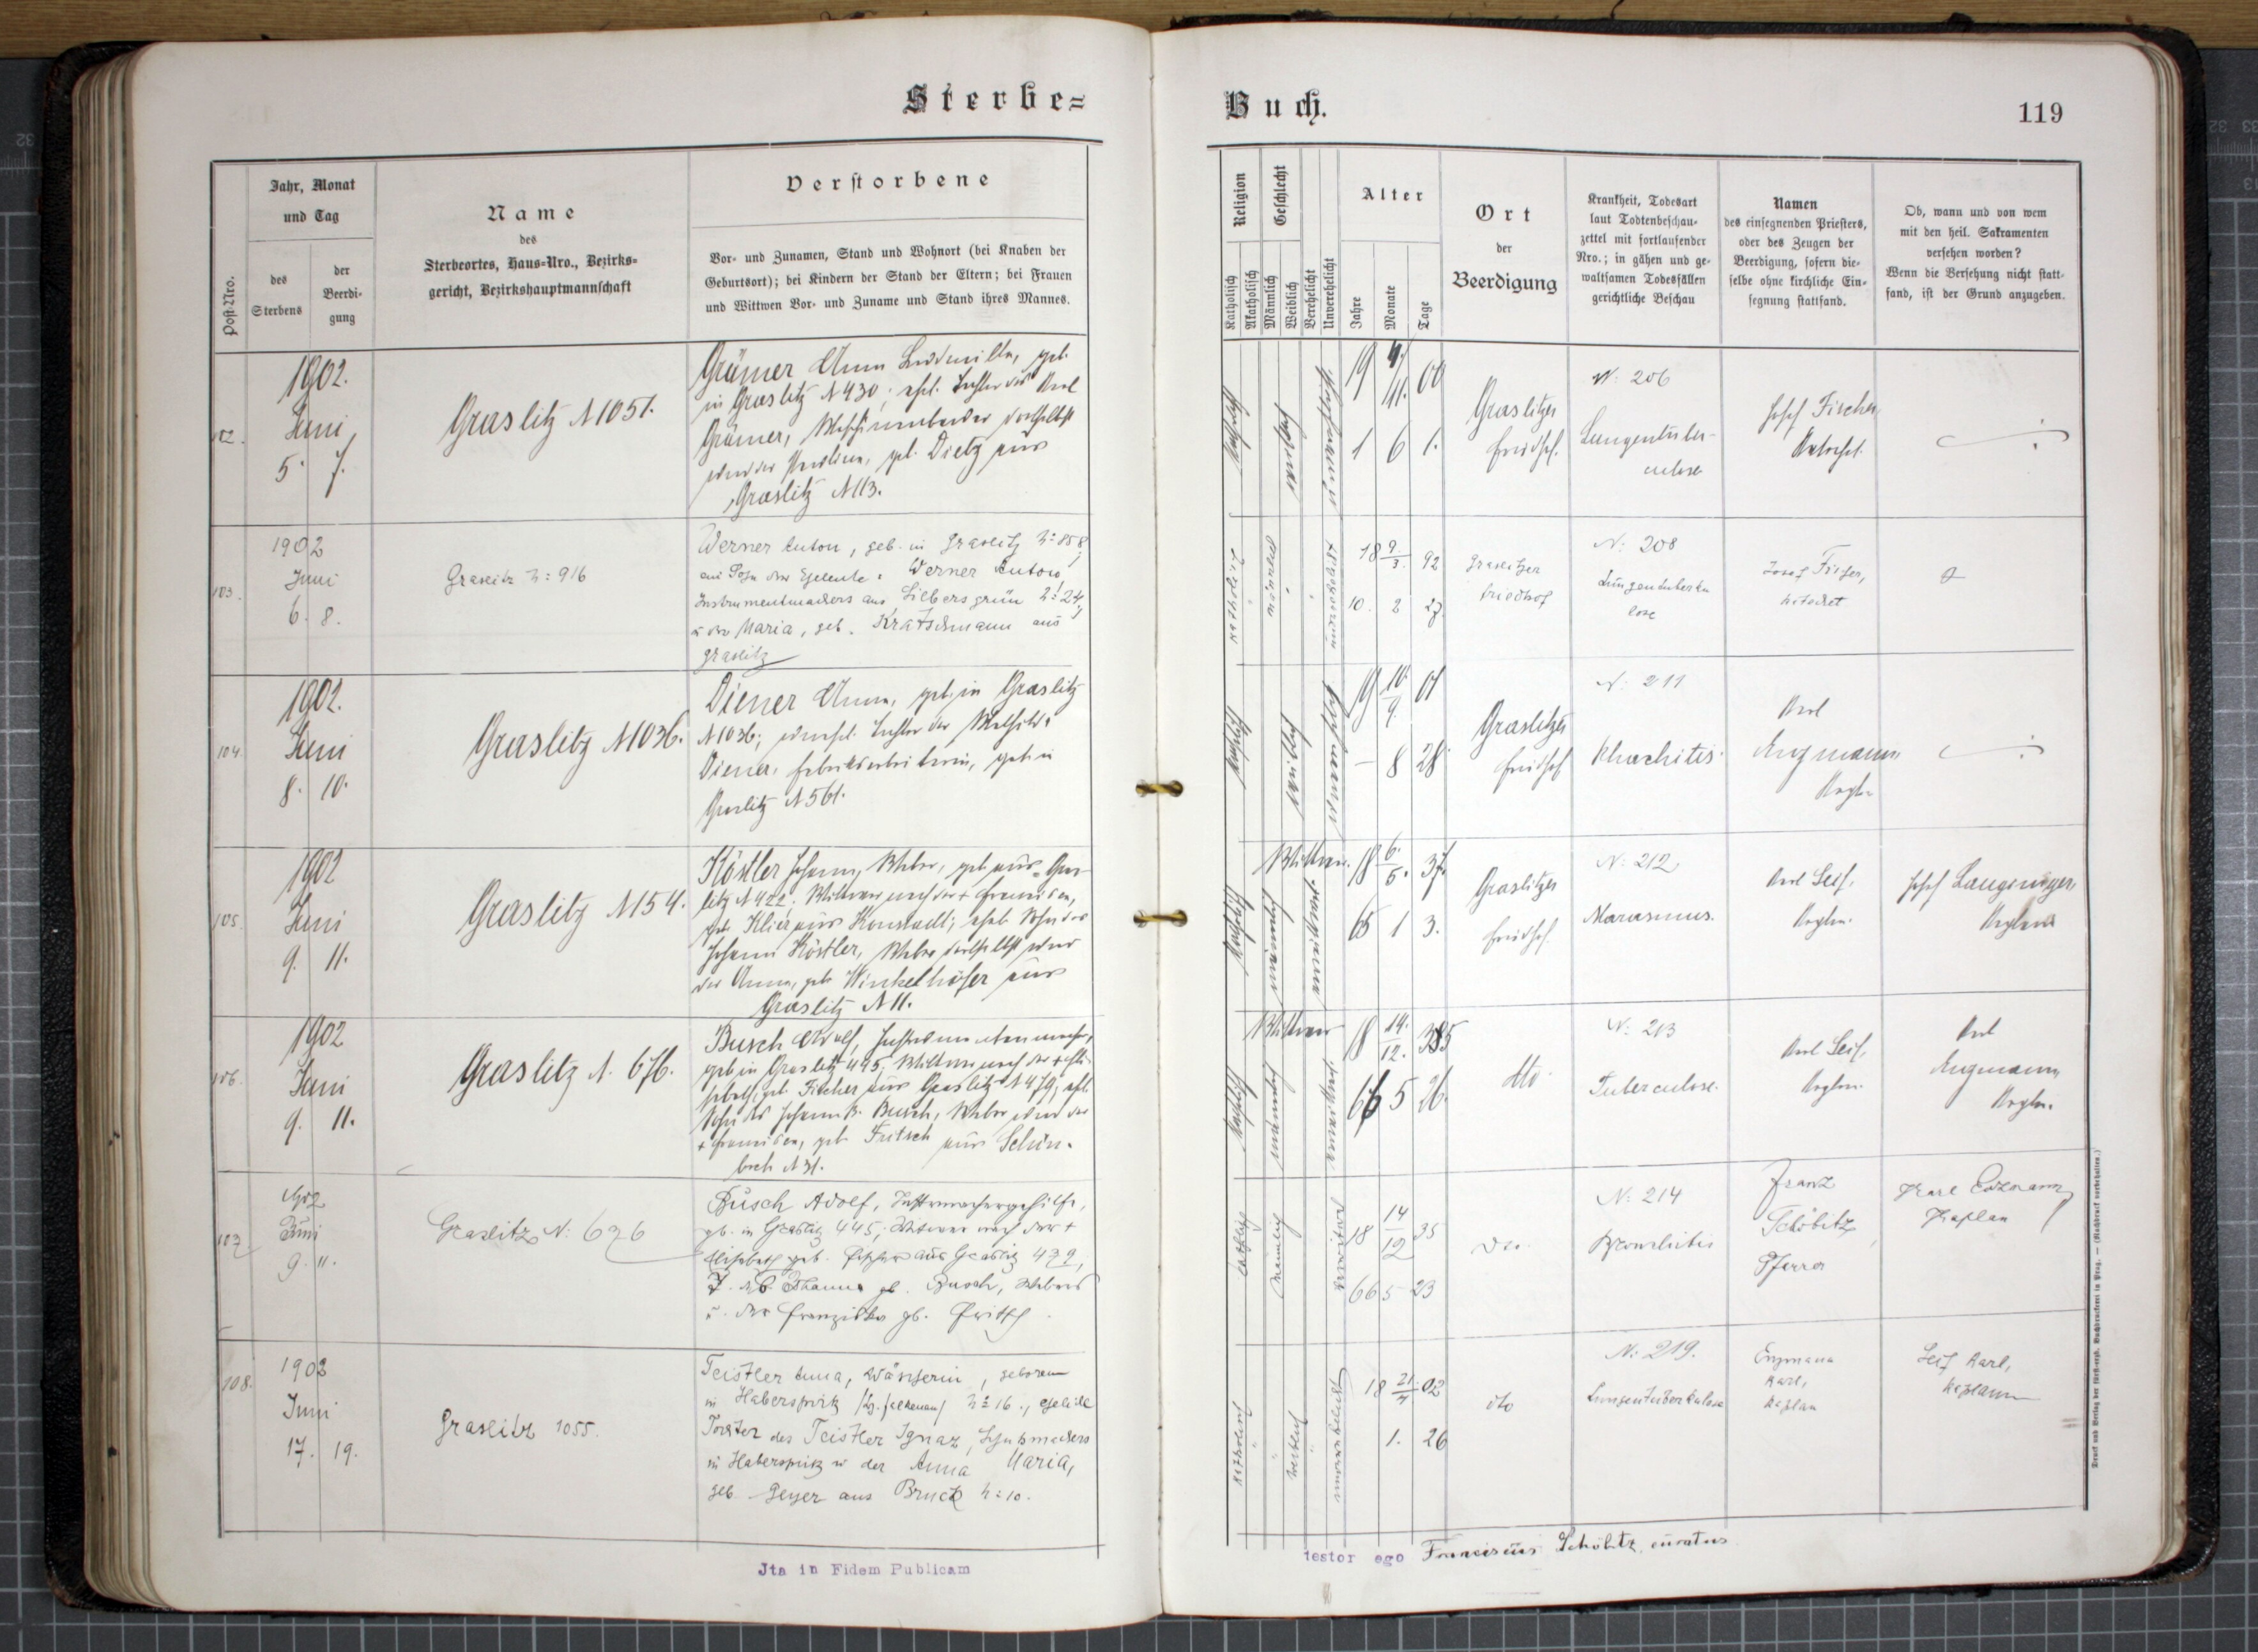 Sterbe=
Buch.
119
Post-Nro.
Jahr, Monat
und Tag
des
Sterbens
der
Beerdi-
gung
Name
des
Sterbeortes, Haus-Nro., Bezirks-
gericht, Bezirkshauptmannschaft
Verstorbene
Vor- und Zunamen, Stand und Wohnort (bei Knaben der
Geburtsort); bei Kindern der Stand der Eltern; bei Frauen
und Wittwen Vor- und Zuname und Stand ihres Mannes.
Religion
Katholisch
Akatholisch
Geschlecht
Männlich
Weiblich
Verehelicht
Unverehelicht
Alter
Jahre
Monate
Tage
Ort
der
Beerdigung
Krankheit, Todesart
laut Todtenbeschau-
zettel mit fortlaufender
Nro.; in gähen und ge-
waltsamen Todesfällen
gerichtliche Beschau
Namen
des einsegnenden Priesters,
oder des Zeugen der
Beerdigung, sofern die-
selbe ohne kirchliche Ein-
segnung stattfand.
Ob, wann und von wem
mit den heil. Sakramenten
versehen worden?
Wenn die Versehung nicht statt-
fand, ist der Grund anzugeben.
102.
1902.
Juni
5. 7.
Graslitz N 1051.
Grümer Anna Ludmilla, geb.
in Graslitz N 430; ehel. Tochter des Karl
Grümer, daselbst
und der geb. Dietz aus
Graslitz N 113.
katholisch
weiblich
unverehelicht
19 4./11. 00
1 6 1.
Graslitzer
Friedhof.
N: 206
Lungentuber-
culose
Josef Fischer,
Katechet.
103.
1902
Juni
6. 8.
Graslitz N: 916
Werner Anton, geb. in Graslitz N: 858,
ein Sohn der Eheleute: Werner Anton,
Instrumentmachers aus Silbersgrün N: 24,
u. der Maria, geb. Kratschmann aus
Graslitz
katholisch
männlich
unverehelicht
18 9/3. 92
10. 2 27.
Graslitzer
Friedhof
N: 208
Lungentuberku
lose
Josef Fischer,
Katechet
104.
1902.
Juni
8. 10.
Graslitz N 1036.
Diener Anna, geb. in Graslitz
N 1036; unehel. Tochter der Mathilde
Diener, Fabriksarbeiterin, geb. in
Graslitz N 561.
katholisch
weiblich
unverehelicht
19 10/9. 01
— 8 28
Graslitzer
Friedhof
N: 211
Rhachitis.
Karl
Kaplan
105.
1902
Juni
9. 11.
Graslitz N 154.
Köstler Johann, Weber, geb. aus Gras-
litz N 422. Wittwer nach der + Franziska,
geb. Klier aus Konstadt; ehel. Sohn des
Johann Köstler, Weber daselbst und
der Anna, geb. Winkelhöfer aus
Graslitz N 11.
katholisch
männlich
Wittwer.
verwittwet.
18 6./5. 37.
65 1 3.
Graslitzer
Friedhof.
N: 212
Marasmus.
Karl Seif,
Kaplan.
Josef Langinger,
Kaplan
106.
1902
Juni
9. 11.
Graslitz N. 676.
Busch Adolf, Instrumentenmacher,
geb. in Graslitz 445; Wittwer nach der + Eli-
sabeth, geb. Fischer aus Graslitz N 479; ehel.
Sohn des Johann B. Busch, Weber und der
+ Franziska, geb. Fritsch aus Schön-
bach N 31.
katholisch
männlich
Wittwer
verwittwet.
18 14./12. 35
66 5 26.
dto
N: 213
Tuberculose.
Karl Seif,
Kaplan.
Karl
Kaplan.
107
1902
Juni
9. 11.
Graslitz N: 676
Busch Adolf, Instrumachergehilfe,
gb. in Graslitz 445; Witwer nach der +
Elisabeth geb. Fischer aus Graslitz 479,
S. d. Johann gb. Busch, Webers
u. der Franziska gb. Fritsch.
kathol.
männlich
verwitwet
18 14/12 35
66 5 23
dto.
N: 214
Bronchitis
Franz
Schöbitz
Pfarrer
Karl Enzmann
Kaplan
108.
1902
Juni
17. 19.
Graslitz 1055.
Teistler Anna, Wäscherin, geboren
in Haberspirk /Bz. Falkenau/ N: 16., eheliche
Tochter des Teistler Ignaz, Schuhmachers
in Haberspirk u der Anna Maria,
geb. Geyer aus Bruck N: 10.
katholisch
weiblich
unverehelicht
18 21/4. 02
1. 26
dto
N: 219.
Lungentuberkulose
Enzmann
Karl,
Kaplan
Seif Karl,
Kaplan
Jta in Fidem Publicam
testor ego Franciscus Schöbitz, curatus
Druck und Verlag der fürst-erzb. Buchdruckerei in Prag. — (Nachdruck vorbehalten.)